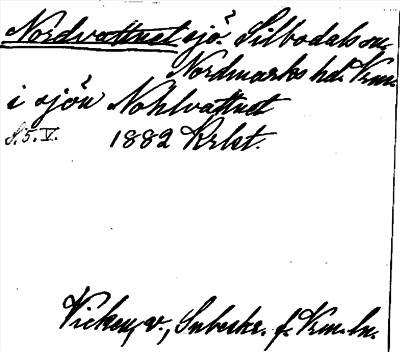 Nordvattnet sjö. Silbodals sn.
Nordmarks hd. Vrm.
i sjön Nohlvattnet
S.5.V. 1882 Krbt.
Vicken, v., Suberkr. f. Vrm. ln.